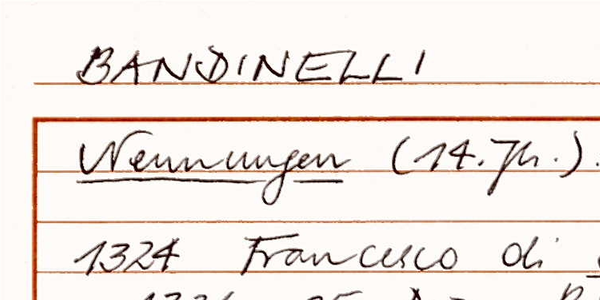 BANDINELLI
Nennungen (14. Jh.).
1324 Francesco di